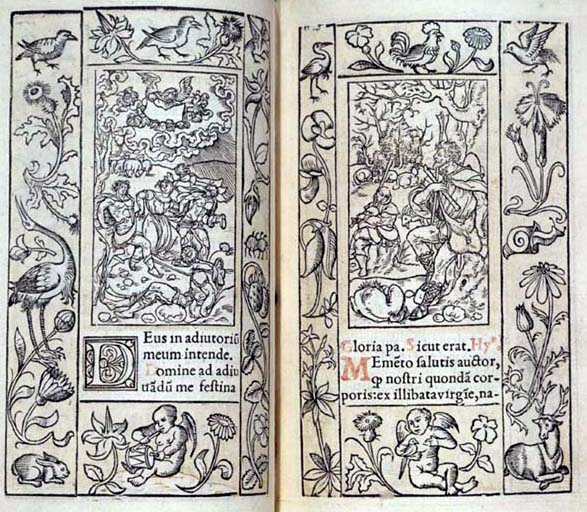 DEus in adiutoriũ
meum intende.
Domine ad adiu
uãdũ me festina
Gloria pa. Sicut erat. Hyꝰ.
MEmẽto salutis auctor,
ꝙ nostri quondã cor-
poris: ex illibata virgĩe, na-